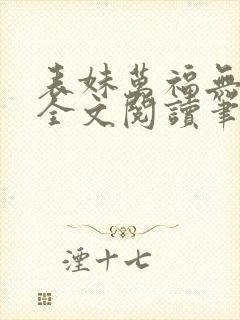 表妹萬福無
全文閱讀筆
湮十七